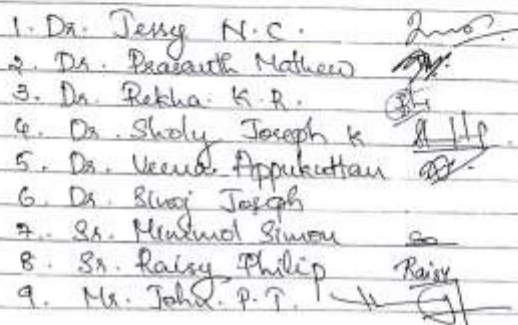 1. Dr. Jessy N.C.
2. Dr. Prasanth Mathew
3. Dr. Rekha. K.R.
4. Dr. Sholy Joseph K
5. Dr. Veena Appukuttan
6. Dr. Sinoj Joseph
7. Sr. Minimol Simon
8. Sr. Raisy Philip Raisy
9. Mr. John. P.T.